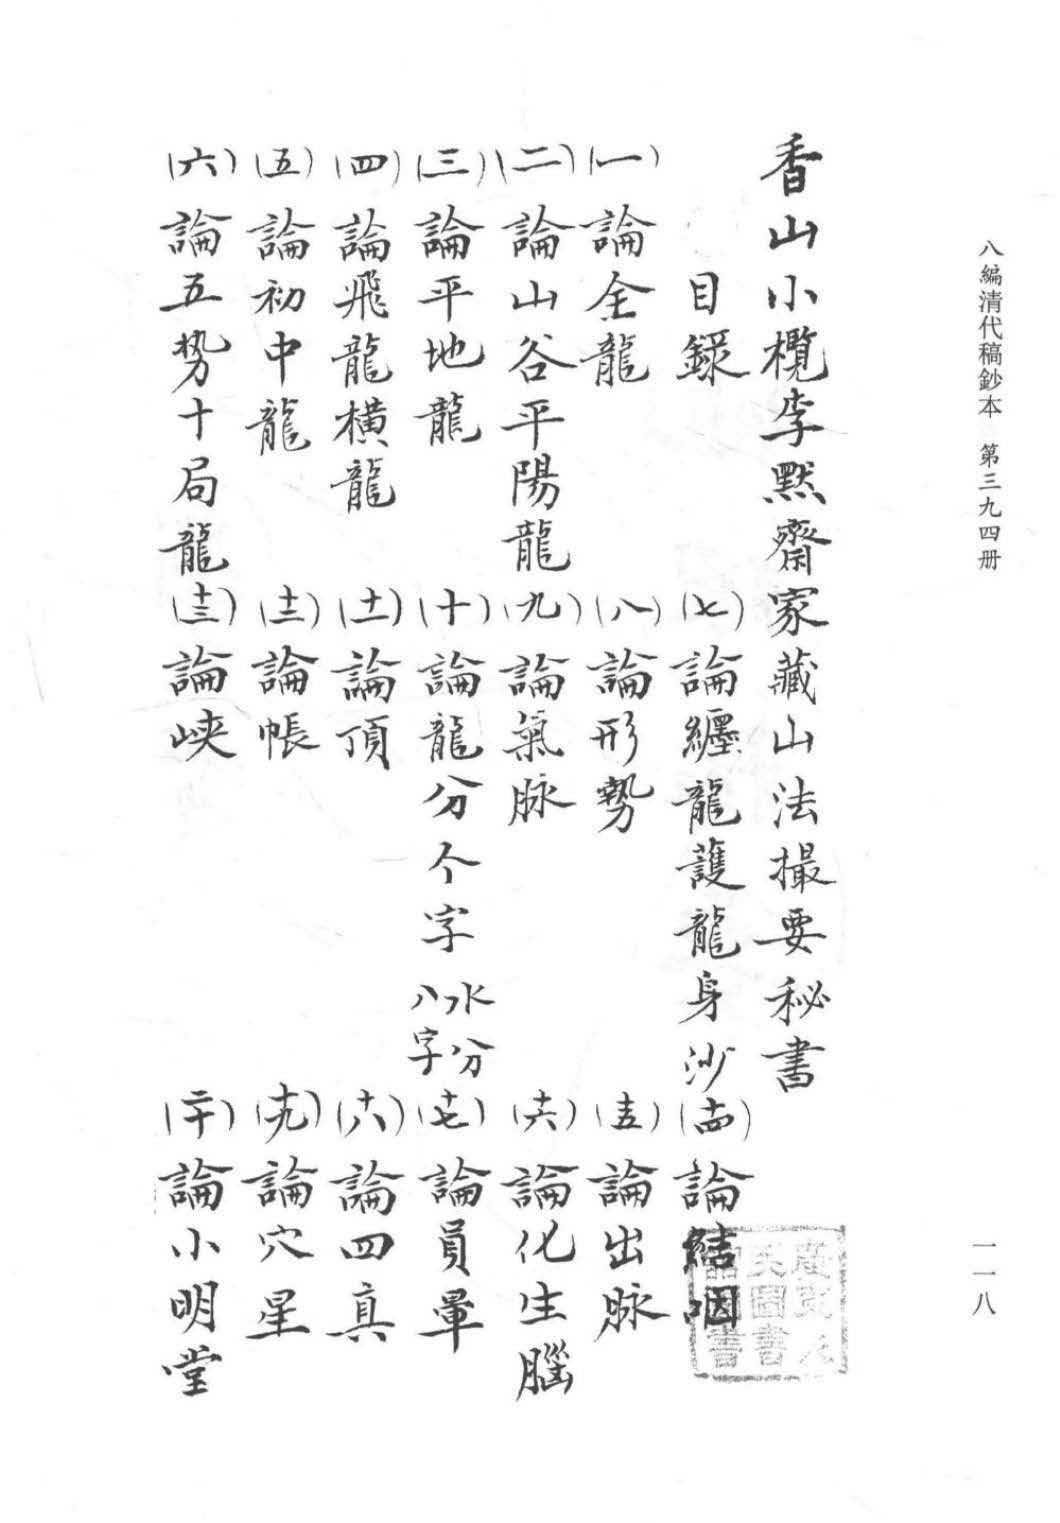 八編清代稿鈔本 第三九四册
香山小欖李黙齋家藏山法撮要秘書
目錄
(一)論全龍
(二)論山谷平陽龍
(三)論平地龍
(四)論飛龍橫龍
(五)論初中龍
(六)論五势十局龍
(七)論纒龍護龍身沙
(八)論形勢
(九)論氣脉
(十)論龍分个字水分八字
(十一)論頂
(十二)論帳
(十三)論峡
(十四)論結咽
(十五)論出脉
(十六)論化生腦
(十七)論員暈
(十八)論四真
(十九)論穴星
(二十)論小明堂
一一八